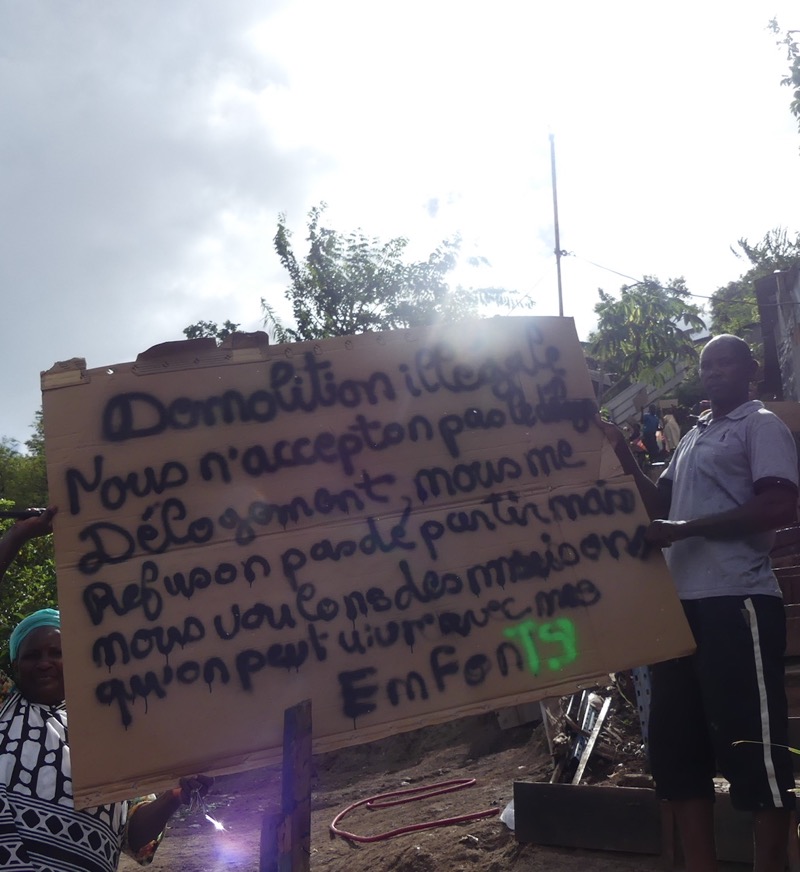 Demolition illegale
Nous n'accepton pas le
Délogoment, nous me
Refuson pas dé partir mais
nous voulons des maisons
qu'on peut vivre avec nos
EmFonTS